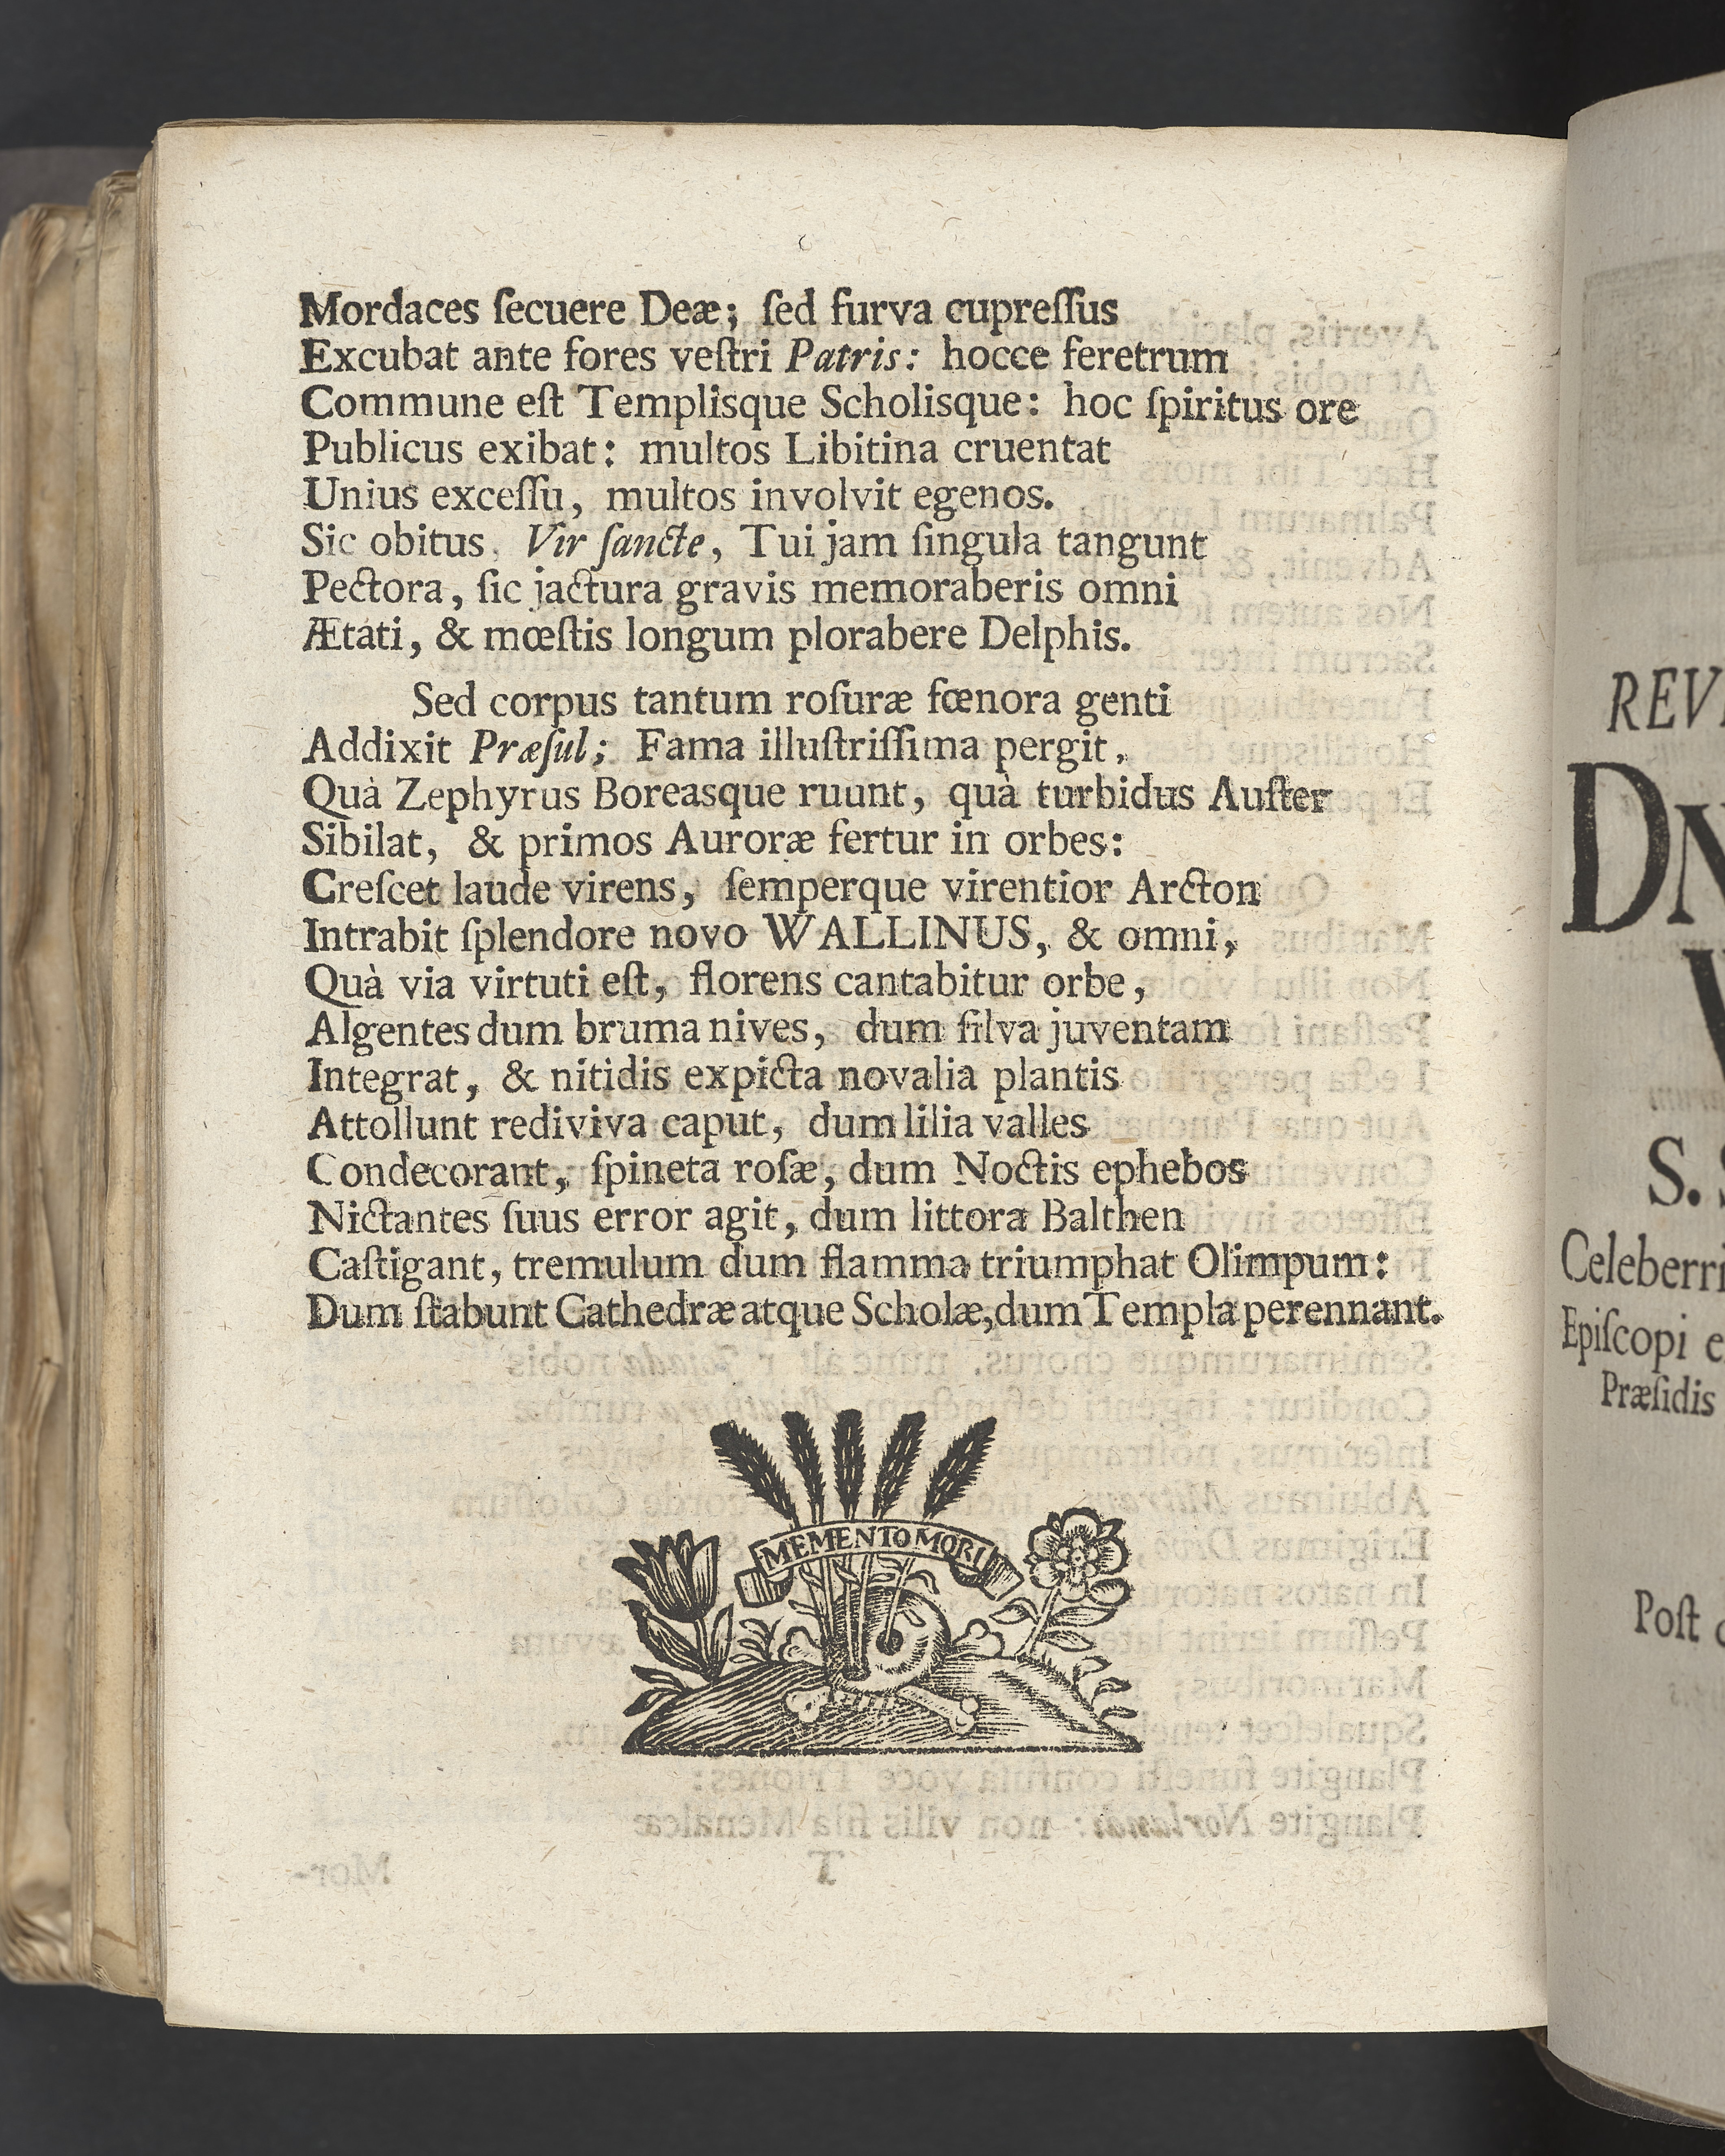 Mordaces ſecuere Deæ; ſed furva cupreſſus
Excubat ante fores veſtri Patris: hocce feretrum
Commune eſt Templisque Scholisque: hoc ſpiritus ore
Publicus exibat: multos Libitina cruentat
Unius exceſſu, multos involvit egenos.
Sic obitus, Vir ſancte, Tui jam ſingula tangunt
Pectora, ſic jactura gravis memoraberis omni
Ætati, & mœſtis longum plorabere Delphis.
Sed corpus tantum roſuræ fœnora genti
Addixit Præſul; Fama illuſtriſſima pergit,
Quà Zephyrus Boreasque ruunt, quà turbidus Auſter
Sibilat, & primos Auroræ fertur in orbes:
Creſcet laude virens, ſemperque virentior Arcton
Intrabit ſplendore novo WALLINUS, & omni,
Quà via virtuti eſt, florens cantabitur orbe,
Algentes dum bruma nives, dum ſilva juventam
Integrat, & nitidis expicta novalia plantis
Attollunt rediviva caput, dum lilia valles
Condecorant, ſpineta roſæ, dum Noctis ephebos
Nictantes ſuus error agit, dum littora Balthen
Caſtigant, tremulum dum flamma triumphat Olimpum:
Dum ſtabunt Cathedræ atque Scholæ, dum Templa perennant.
MEMENTO MORI
REV
DN
V
S. S
Celeberri
Epiſcopi e
Præſidis
Poſt